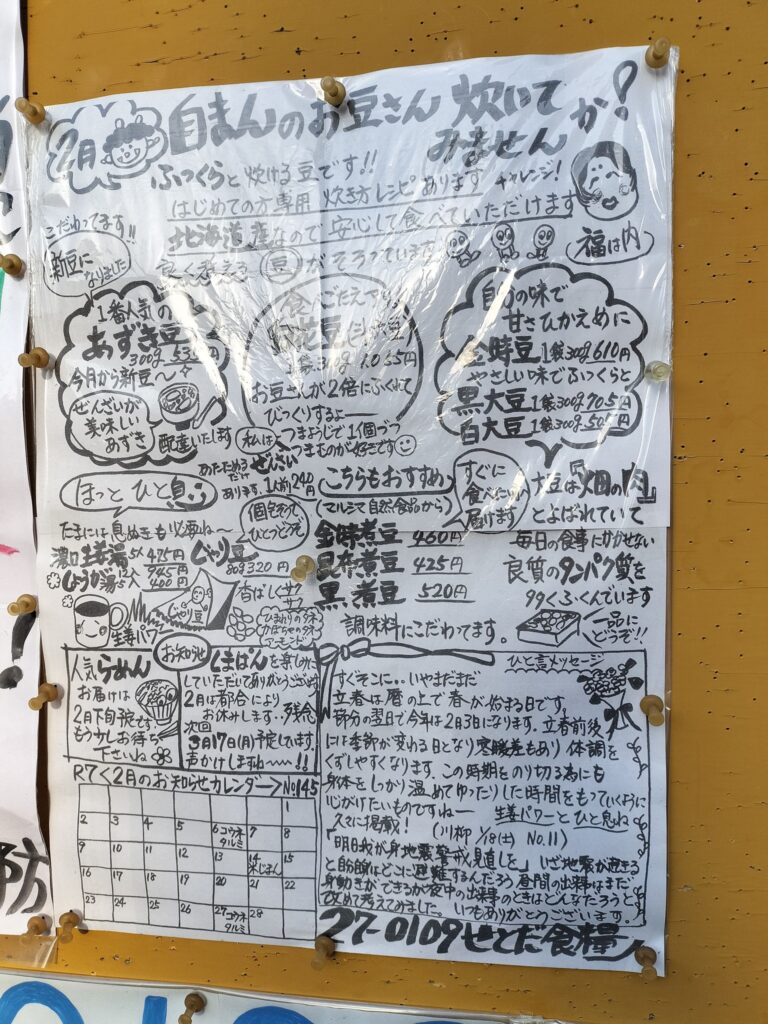 2月 自まんのお豆さん 炊いて
みませんか!
ふっくらと炊ける豆です!!
はじめての方専用 炊き方レシピあります チャレンジ!
北海道産なので安心して食べていただけます
豆がそろっています
福は内
こだわってます!!
新豆に
なりました
1番人気の
あずき豆
300g
今月から新豆〜
ぜんざいが
美味しい
あずき
配達いたします
食べごたえ
1袋300g 1,055円
お豆さんが2倍にふくれて
びっくりするよー
私は
つまようじで1個づつ
つまむのが好きです
自分の味で
甘さひかえめに
金時豆 1袋300g 610円
やさしい味でふっくらと
黒大豆 1袋300g 705円
白大豆 1袋300g 505円
あたためる
だけ ぜんざい
あります。1人前240円
ほっとひと息
たまには息ぬきも必要ね〜
濃口生姜湯 5入 475円
しょうが湯 12入 945円
400円
生姜パワー
個包装で
ひとつどうぞ
じゃり豆
80g 320円
じゃり豆
香ばしくサクサク
ひまわりのタネ
かぼちゃのタネ
アーモンド
こちらもおすすめ
(マルシマ自然食品から)
すぐに
食べたい人
届けます
金時煮豆 460円
昆布煮豆 425円
黒煮豆 520円
調味料にこだわってます。
大豆は『畑の肉』
とよばれていて
毎日の食事にかかせない
良質のタンパク質を
99くふくんでいます
一品に
どうぞ!!
人気らーめん
お届けは
2月下旬予定です
もう少しお待ち
下さいね
お知らせ
くまぱんを楽しみに
していただいてありがとうございます
2月は都合により
お休みします。残念
次回
3月17日(月)予定しています
声かけしますね〜!!
ひと言メッセージ
すぐそこに。。いやまだまだ
立春は暦の上で春が始まる日です。
節分の翌日で今年は2月3日になります。立春前後
には季節が変わる日となり寒暖差もあり体調を
くずしやすくなります。この時期をのり切る為にも
身体をしっかり温めてゆったりした時間をもっていくように
心がけたいものですねー 生姜パワーとひと息ね
久々に掲載! (川柳 1/18(土) No.11)
「明日我が身地震警戒見直しを」いざ地震が起きる
と自分はどこに避難するんだろう昼間の出来事はまだ
身動きができるが夜中の出来事のときはどんなだろうと
改めて考えてみました。いつもありがとうございます。
R7〈2月のお知らせカレンダー〉No.145
1
2 3 4 5 6 コウネ タルミ 7 8
9 10 11 12 13 14 米じまん 15
16 17 18 19 20 21 22
23 24 25 26 27 コウネ タルミ 28
27-0109 せとだ食糧